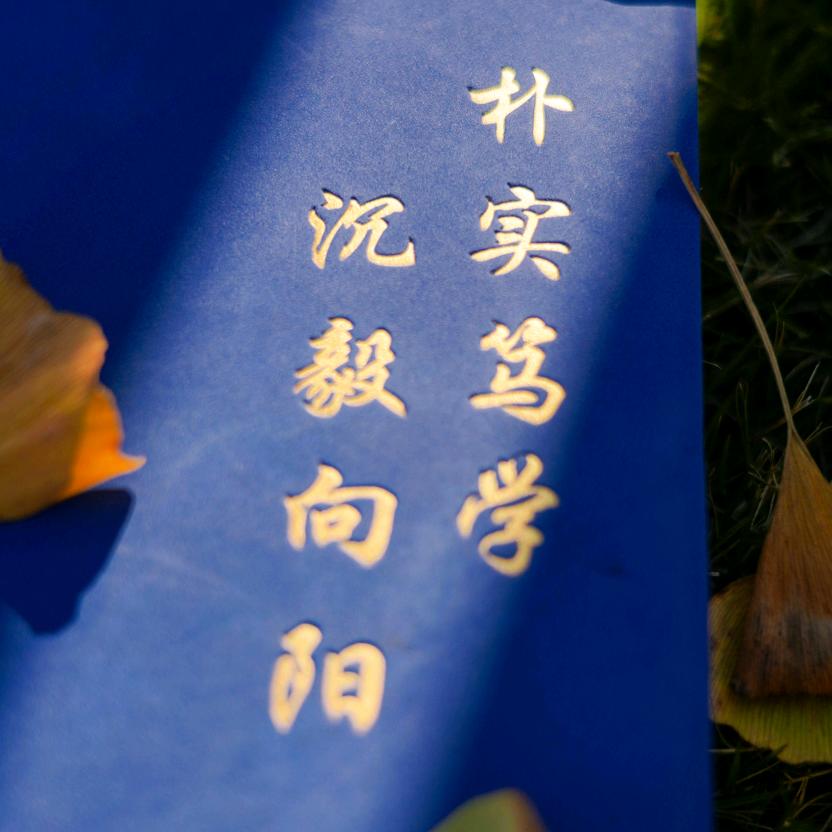 朴实笃学
沉毅向阳